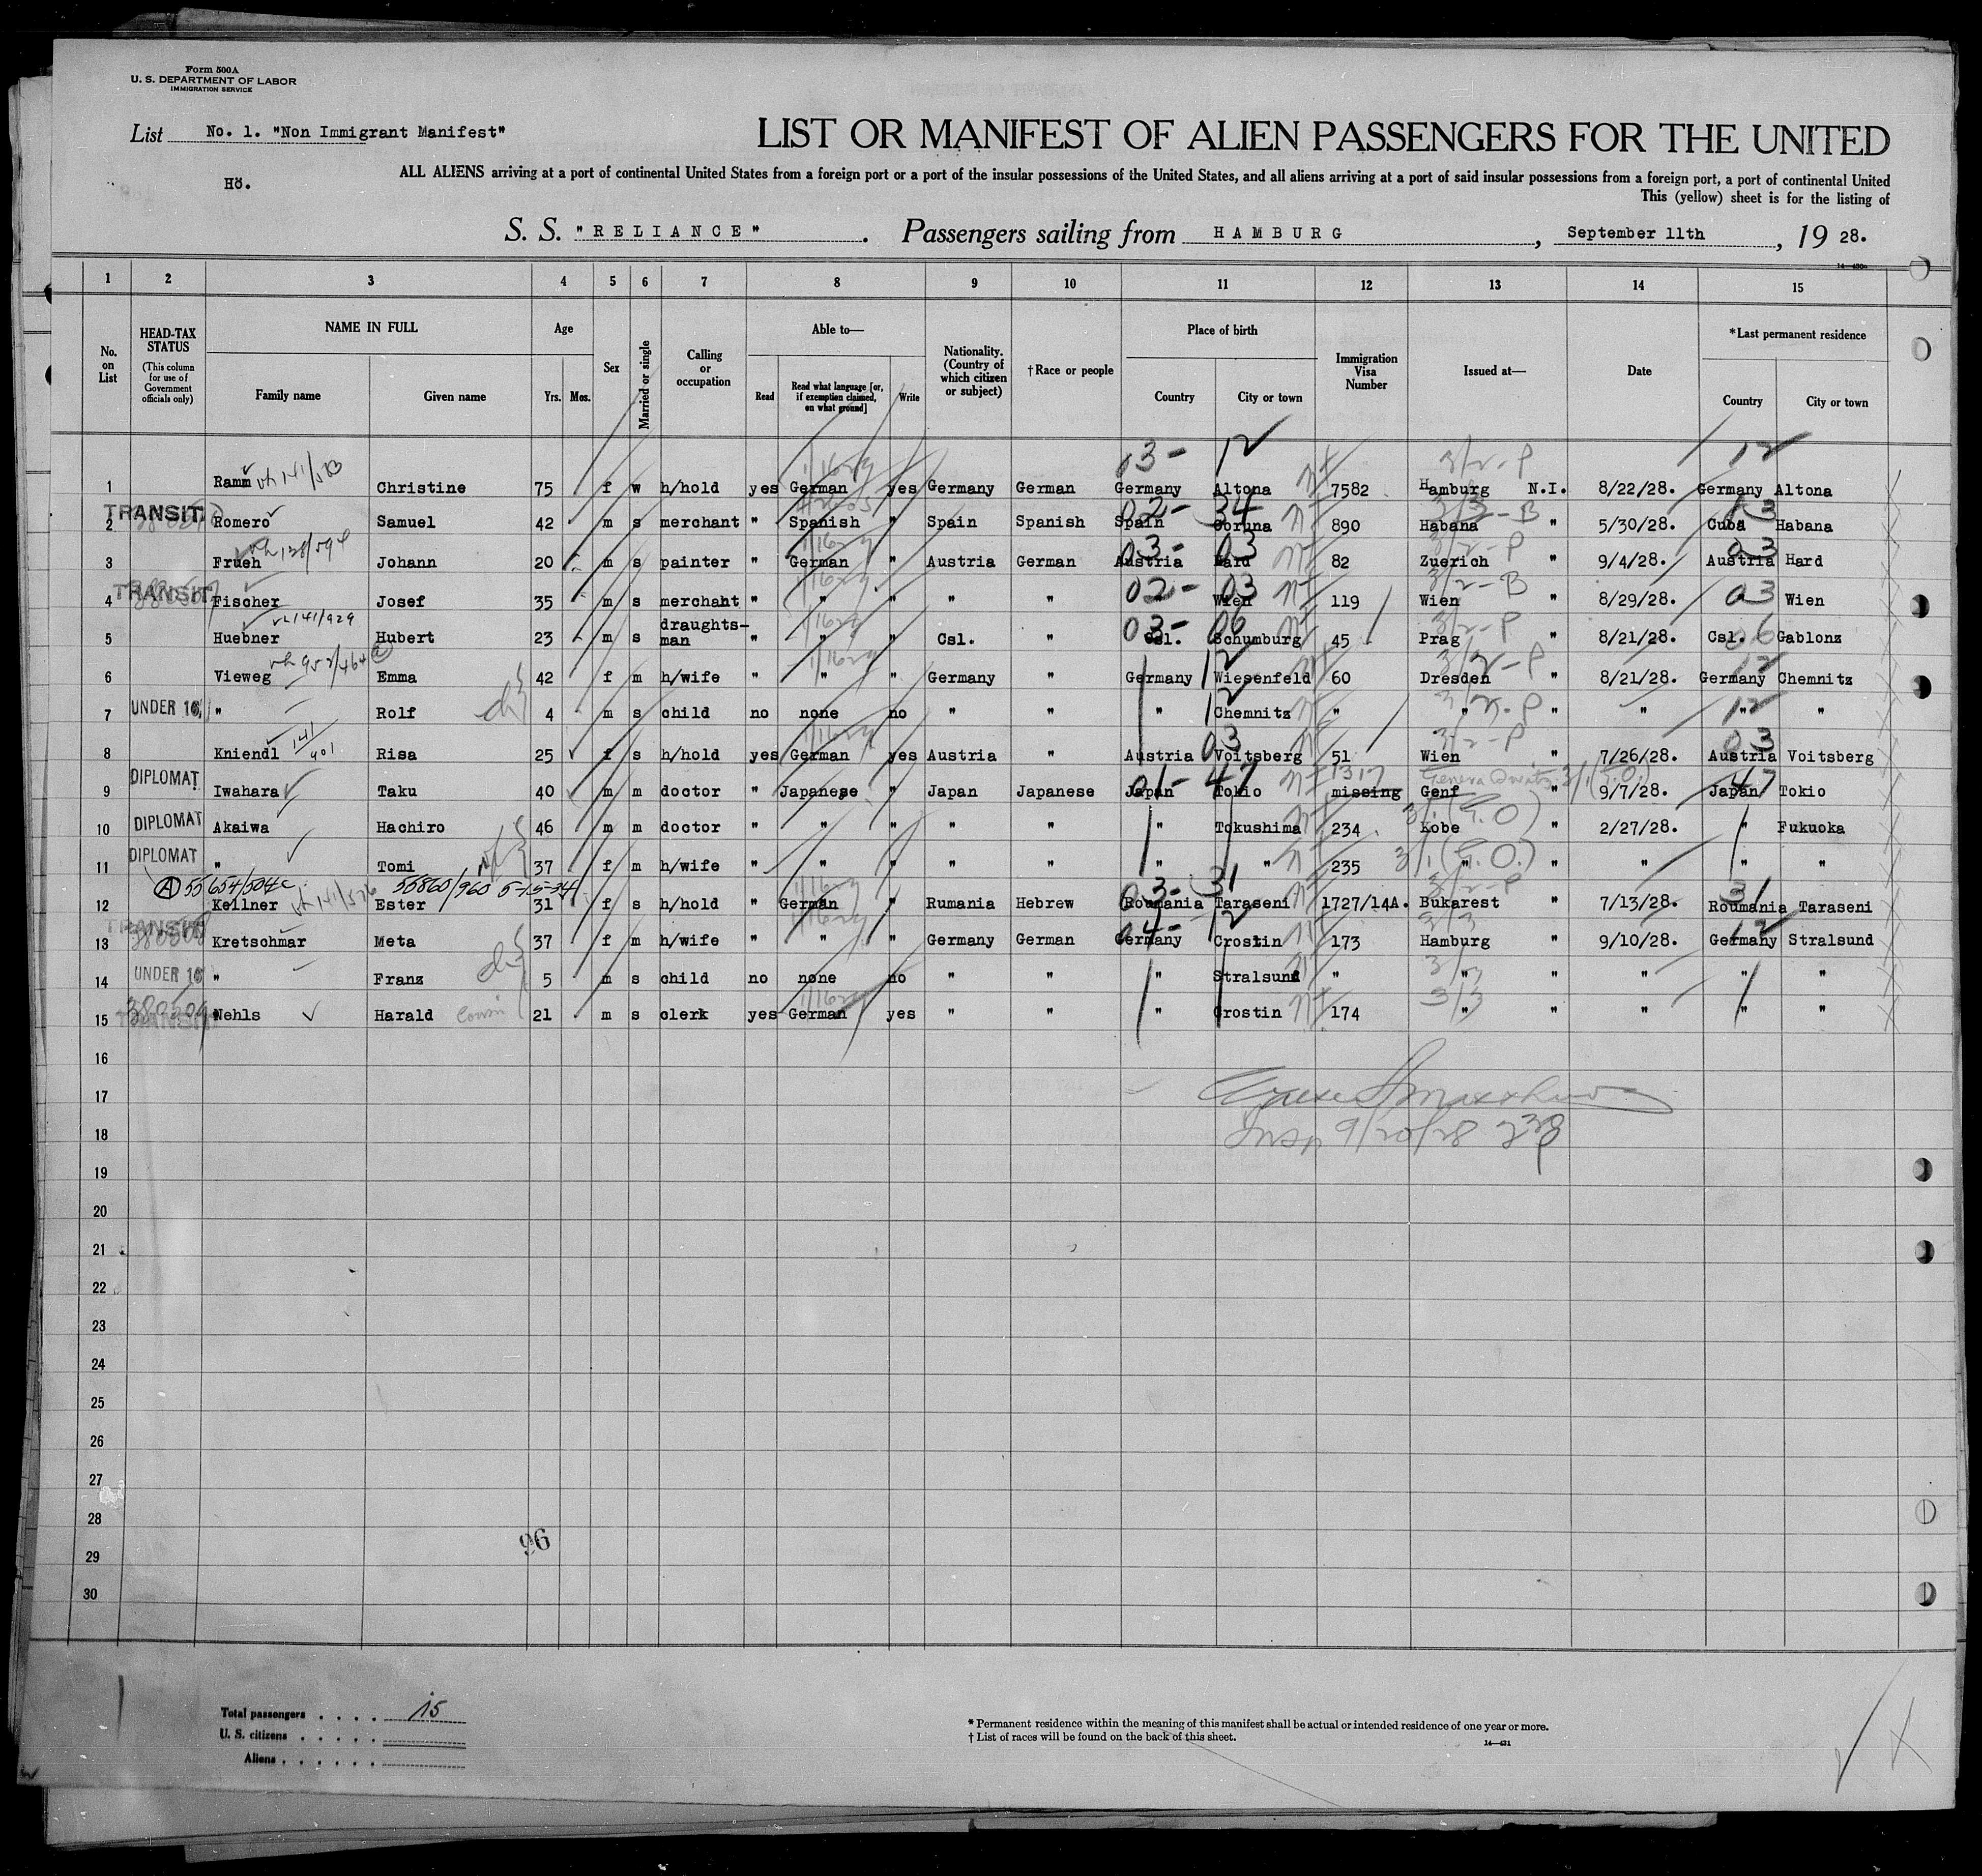 Form 500A
U. S. DEPARTMENT OF LABOR
IMMIGRATION SERVICE
List No. 1. "Non Immigrant Manifest"
LIST OR MANIFEST OF ALIEN PASSENGERS FOR THE UNITED
Hö.
ALL ALIENS arriving at a port of continental United States from a foreign port or a port of the insular possessions of the United States, and all aliens arriving at a port of said insular possessions from a foreign port, a port of continental United
This (yellow) sheet is for the listing of
S. S. "RELIANCE". Passengers sailing from HAMBURG, September 11th, 19 28.
1 2 3 4 5 6 7 8 9 10 11 12 13 14 15
No. on List
HEAD-TAX STATUS (This column for use of Government officials only)
NAME IN FULL
Family name Given name
Age
Yrs. Mos.
Sex
Married or single
Calling or occupation
Able to—
Read Read what language [or, if exemption claimed, on what ground] Write
Nationality. (Country of which citizen or subject)
†Race or people
Place of birth
Country City or town
Immigration Visa Number
Issued at—
Date
*Last permanent residence
Country City or town
03- 12 3/2-P 12
1 Ramm 141/583 Christine 75 f w h/hold yes German yes Germany German Germany Altona 7582 Hamburg N.I. 8/22/28. Germany Altona
TRANSIT 02- 34 3/3-B
2 Romero Samuel 42 m s merchant " Spanish " Spain Spanish Spain Coruna 890 Habana " 5/30/28. Cuba Habana
03- 03 3/2-P 03
3 Frueh Johann 20 m s painter " German " Austria German Austria Hard 82 Zuerich " 9/4/28. Austria Hard
TRANSIT 02- 03 3/2-B 03
4 Fischer Josef 35 m s merchant " " " " " " Wien 119 Wien " 8/29/28. Wien
141/929 03- 06 3/2-P 06
5 Huebner Hubert 23 m s draughts-man " " " Csl. " Csl. Schumburg 45 Prag " 8/21/28. Csl. Gablonz
12 3/2-P 12
6 Vieweg Emma 42 f m h/wife " " " Germany " Germany Wiesenfeld 60 Dresden " 8/21/28. Germany Chemnitz
12 3/2-P 12
7 UNDER 16 " Rolf 4 m s child no none no " " " Chemnitz " " " " " "
03 3/2-P 03
8 Kniendl 141/401 Risa 25 f s h/hold yes German yes Austria " Austria Voitsberg 51 Wien " 7/26/28. Austria Voitsberg
DIPLOMAT 01- 47 1317 47
9 Iwahara Taku 40 m m doctor " Japanese " Japan Japanese Japan Tokio missing Genf " 9/7/28. Japan Tokio
10 DIPLOMAT Akaiwa Hachiro 46 m m doctor " " " " " " Tokushima 234 Kobe " 2/27/28. " Fukuoka
11 DIPLOMAT " Tomi 37 f m h/wife " " " " " " " 235 " " " " "
A 55654/504c 55860/960 5-15-34 03- 31 3/2-P 31
12 Kellner Ester 31 f s h/hold " German " Rumania Hebrew Roumania Taraseni 1727/14A. Bukarest " 7/13/28. Roumania Taraseni
TRANSIT 04- 12 3/3 12
13 Kretschmar Meta 37 f m h/wife " " " Germany German Germany Crostin 173 Hamburg " 9/10/28. Germany Stralsund
14 UNDER 16 " Franz 5 m s child no none no " " " Stralsund " " " " " "
15 TRANSIT Nehls Harald Cousin 21 m s clerk yes German yes " " " Crostin 174 " " " " "
16
17
Insp 9/20/28
18
19
20
21
22
23
24
25
26
27
28
29
96
30
Total passengers . . . . 15
U. S. citizens . . . . .
Aliens . . . . . .
* Permanent residence within the meaning of this manifest shall be actual or intended residence of one year or more.
† List of races will be found on the back of this sheet.
14—431